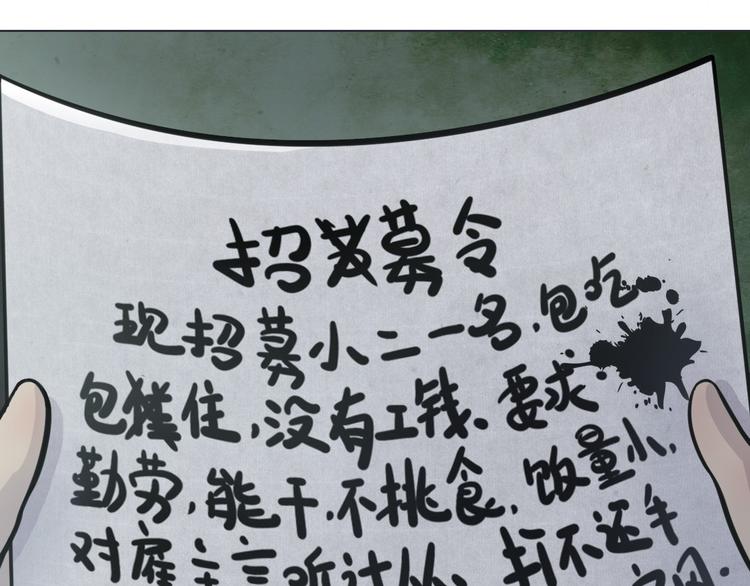 招募令
现招募小二一名，包吃
包住，没有工钱、要求
勤劳，能干，不挑食，饭量小，
对雇主言听计从、打不还手